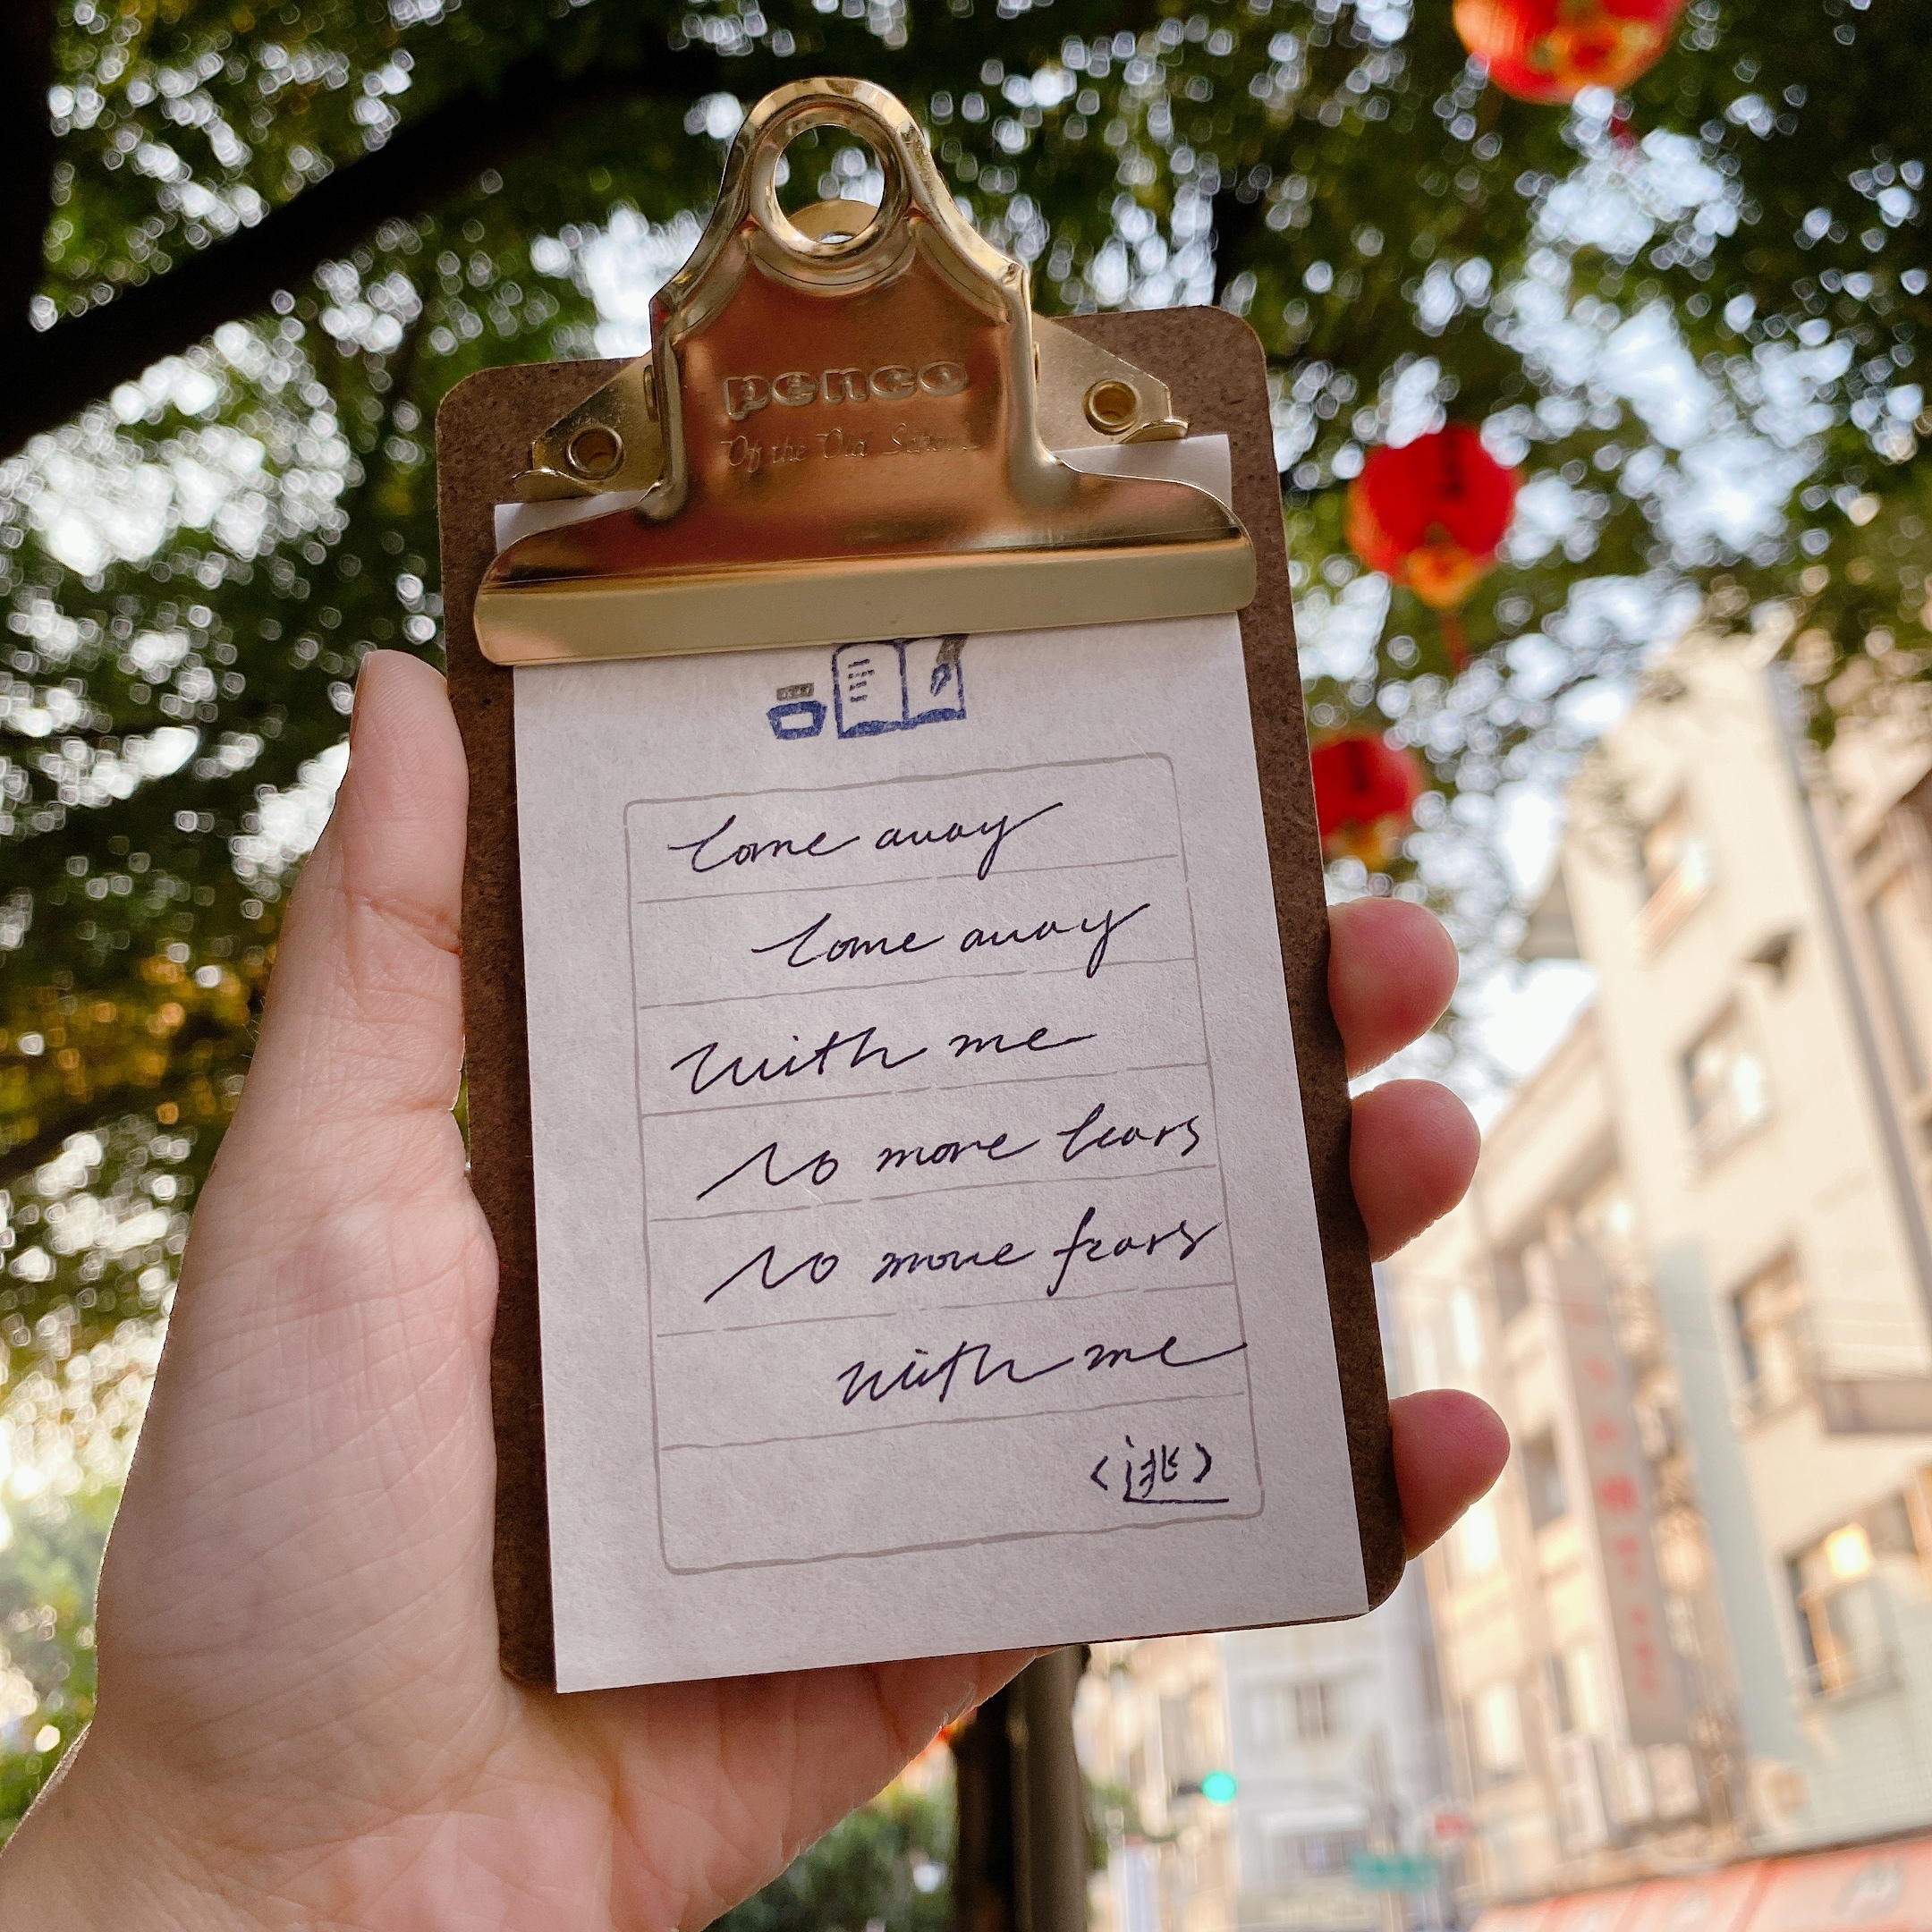 penco
Of the Old School
Come away
Come away
With me
No more tears
No more fears
with me
<逃>